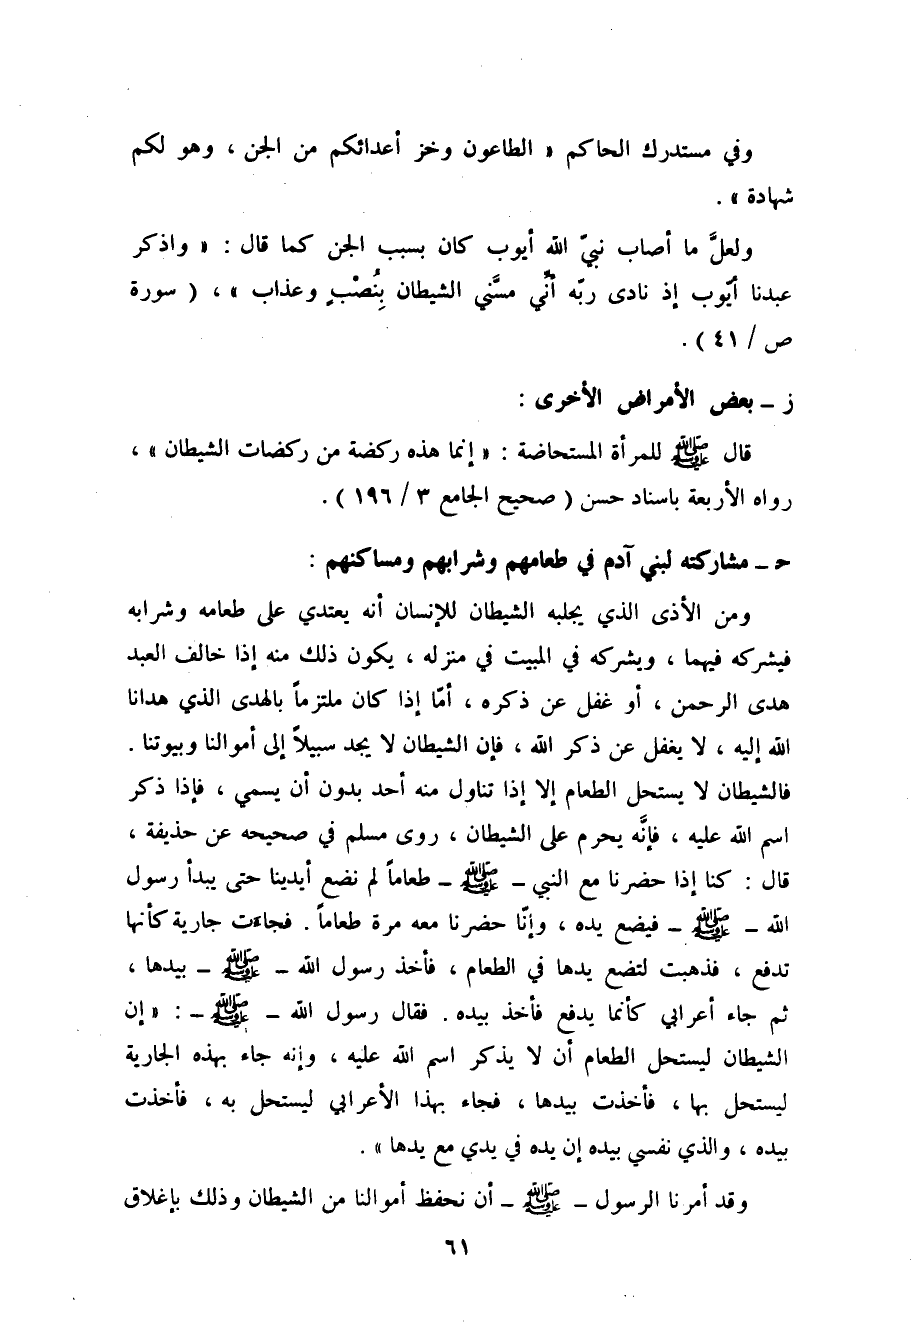 وفي مستدرك الحاكم « الطاعون وخز أعدائكم من الجن ، وهو لكم
شهادة » .
ولعلَّ ما أصاب نبيّ الله أيوب كان بسبب الجن كما قال : « واذكر
عبدنا أيّوب إذ نادى ربّه أنّي مسَّني الشيطان بِنُصْبٍ وعذاب » ، ( سورة
ص / ٤١ ) .
ز ـ بعض الأمراض الأخرى :
قال ﷺ للمرأة المستحاضة : « إنما هذه ركضة من ركضات الشيطان » ،
رواه الأربعة باسناد حسن ( صحيح الجامع ٣ / ١٩٦ ) .
حـ ـ مشاركته لبني آدم في طعامهم وشرابهم ومساكنهم :
ومن الأذى الذي يجلبه الشيطان للإنسان أنه يعتدي على طعامه وشرابه
فيشركه فيهما ، ويشركه في المبيت في منزله ، يكون ذلك منه إذا خالف العبد
هدى الرحمن ، أو غفل عن ذكره ، أمّا إذا كان ملتزماً بالهدى الذي هدانا
الله إليه ، لا يغفل عن ذكر الله ، فإن الشيطان لا يجد سبيلاً إلى أموالنا وبيوتنا .
فالشيطان لا يستحل الطعام إلا إذا تناول منه أحد بدون أن يسمي ، فإذا ذكر
اسم الله عليه ، فإنَّه يحرم على الشيطان ، روى مسلم في صحيحه عن حذيفة ،
قال : كنا إذا حضرنا مع النبي ـ ﷺ ـ طعاماً لم نضع أيدينا حتى يبدأ رسول
الله ـ ﷺ ـ فيضع يده ، وإنّا حضرنا معه مرة طعاماً . فجاءت جارية كأنها
تدفع ، فذهبت لتضع يدها في الطعام ، فأخذ رسول الله ـ ﷺ ـ بيدها ،
ثم جاء أعرابي كأنما يدفع فأخذ بيده . فقال رسول الله ـ ﷺ ـ : « إن
الشيطان ليستحل الطعام أن لا يذكر اسم الله عليه ، وإنه جاء بهذه الجارية
ليستحل بها ، فأخذت بيدها ، فجاء بهذا الأعرابي ليستحل به ، فأخذت
بيده ، والذي نفسي بيده إن يده في يدي مع يدها » .
وقد أمرنا الرسول ـ ﷺ ـ أن نحفظ أموالنا من الشيطان وذلك بإغلاق
٦١